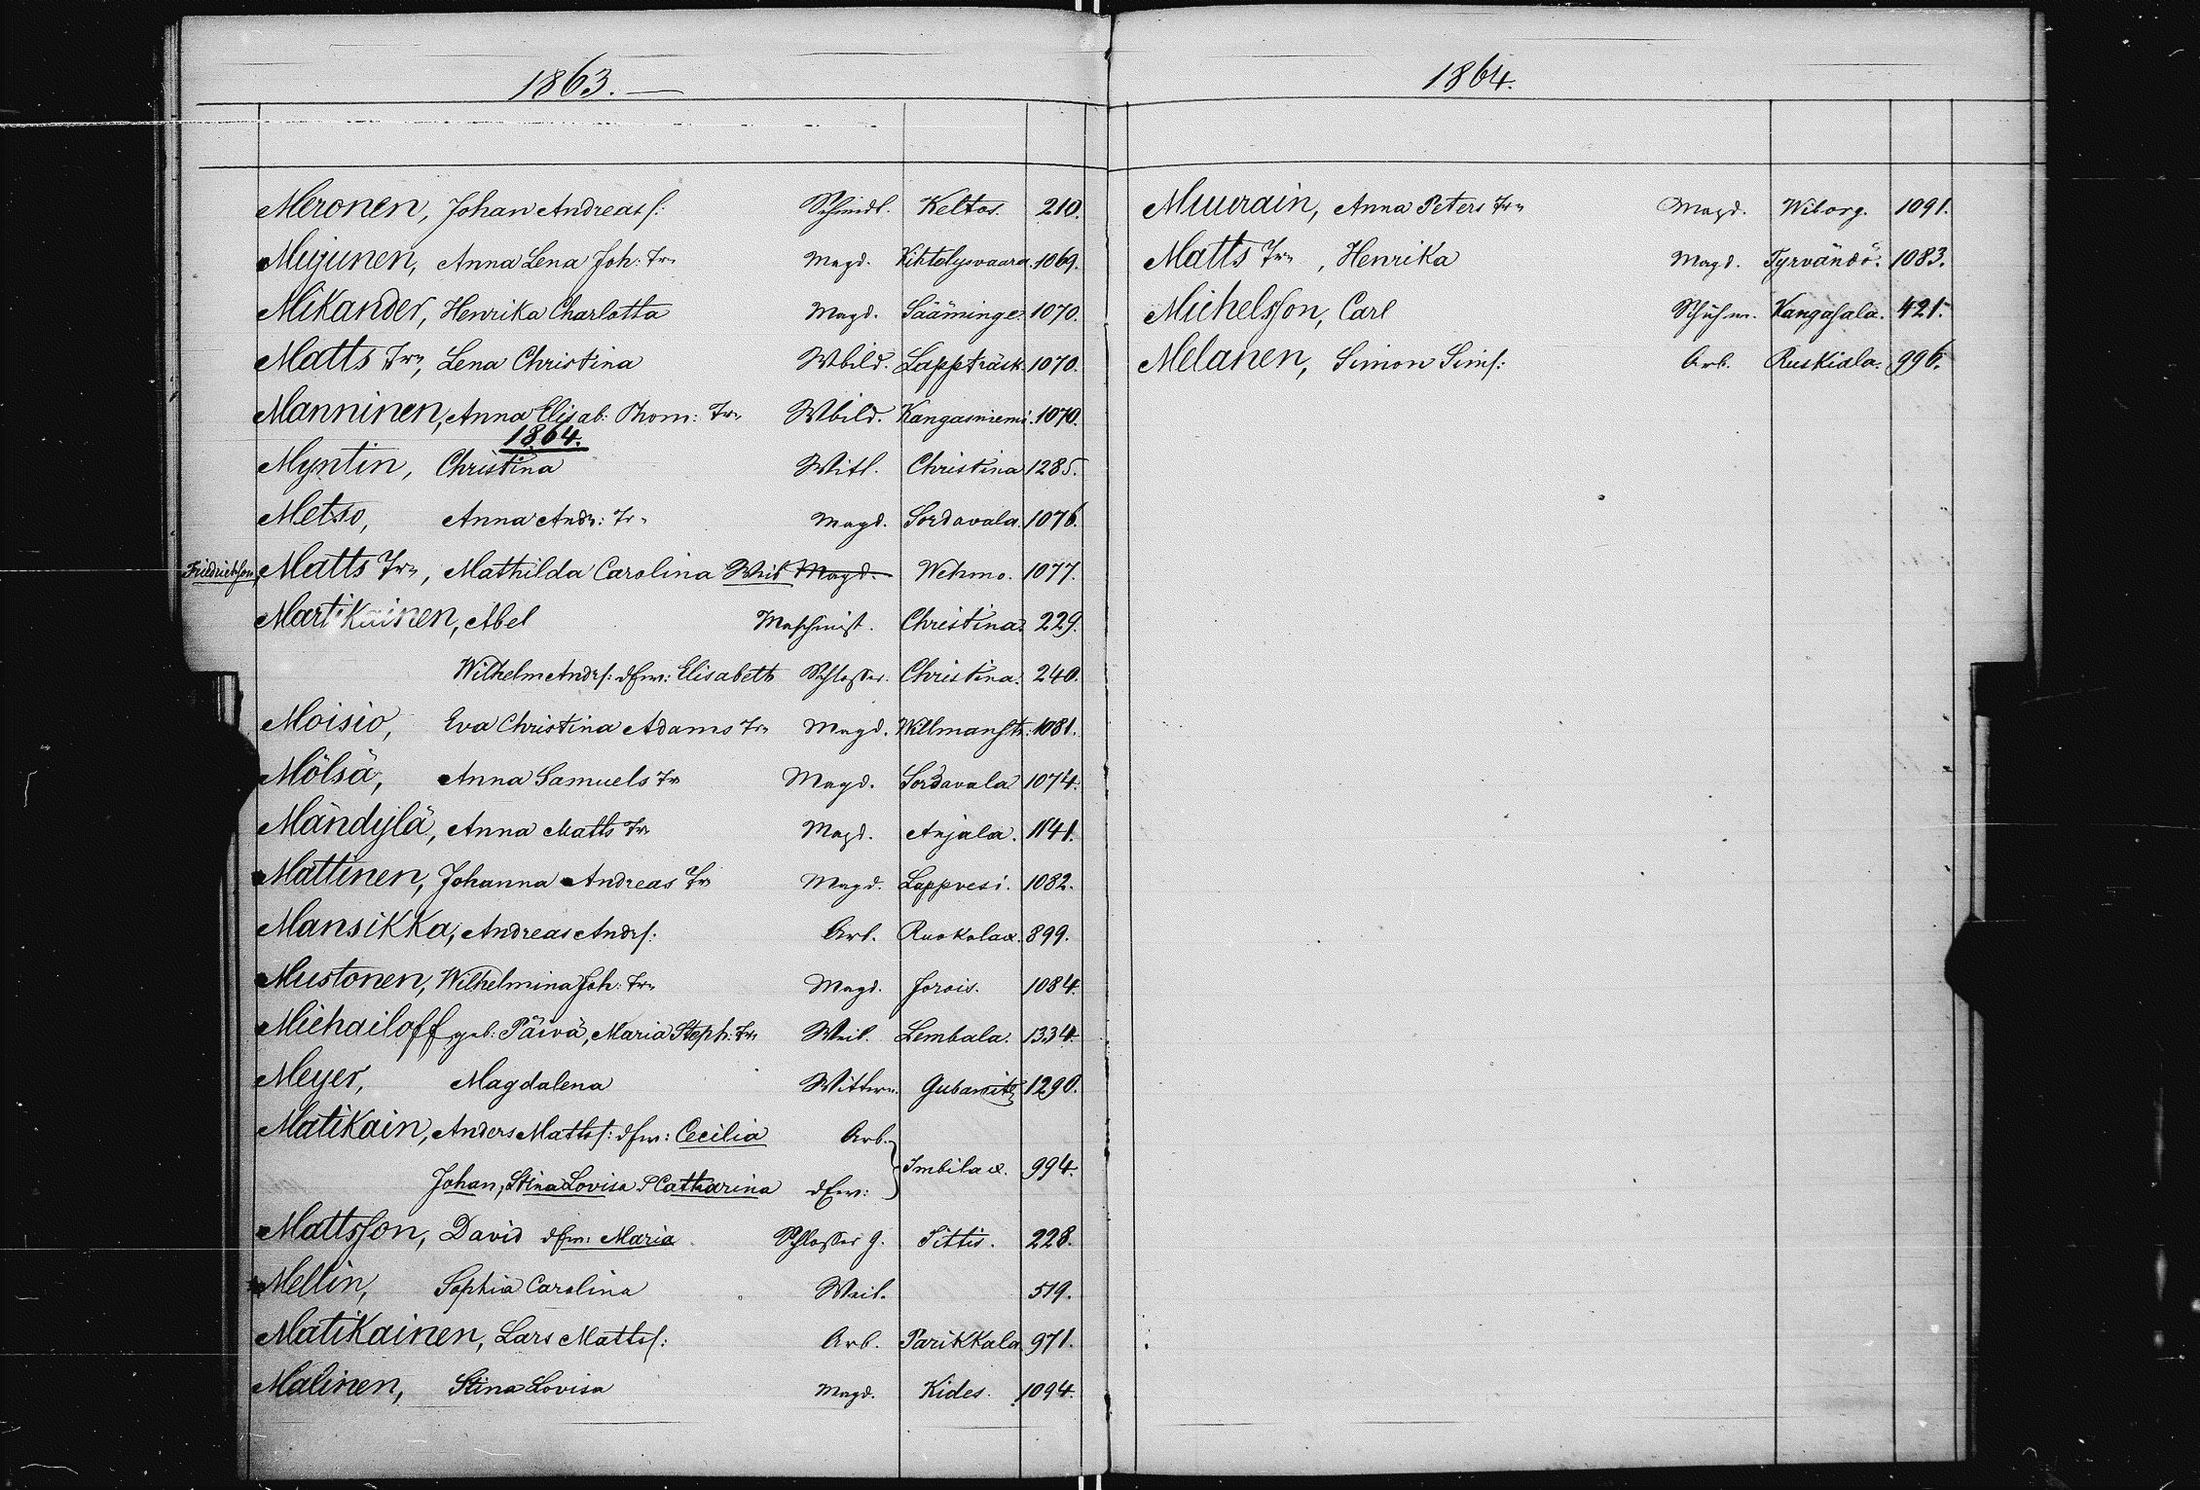 1863.—
Meronen, Johan Andreass: Schmidt. Keltos. 210.
Mujunen, Anna Lena Joh: Tr. Magd. Kihtelysvaara. 1069.
Mikander, Henrika Charlotta Magd. Sääminge. 1070.
Matts Tr, Lena Christina Wbild. Lappträsk. 1070.
Manninen, Anna Elisab: Thom: Tr. Wbild. Kangasniemi. 1070.
1864.
Myntin, Christina Witl. Christina 1285.
Metso, Anna Andr: Tr. Magd. Sordavala. 1076.
Friedrichson, Matts Tr, Mathilda Carolina Weib Magd. Wehmo. 1077.
Martikainen, Abel Maschinist. Christina. 229.
Wilhelm Andrs: dfrn: Elisabeth Schlosser. Christina. 240.
Moisio, Eva Christina Adams Tr. Magd. Willmanstr. 1081.
Mölsä, Anna Samuels Tr Magd. Sordavala 1074.
Mändylä, Anna Matts Tr Magd. Anjala. 1141.
Mattinen, Johanna Andreas Tr Magd. Lappvesi. 1082.
Mansikka, Andreas Andrs: Arb. Ruokolax. 899.
Mustonen, Wilhelmina Joh: Tr. Magd. Jorois. 1084.
Michailoff, geb: Päivä, Maria Steph: Tr. Weib. Lembala. 1334.
Meyer, Magdalena Wittwe. Gubanitz 1290.
Matikain, Anders Mattss: dfrn: Cecilia Arb.
Johan, Stina Lovisa & Catharina dfrn: Imbilax. 994.
Mattsson, David dfrn: Maria Schlosser g. Sittis. 228.
Mellin, Sophia Carolina Weib. 519.
Matikainen, Lars Mattss: Arb. Parikkala 971.
Malinen, Stina Lovisa Magd. Kides. 1094.
1864.
Muurain, Anna Peters Tr. Magd. Wiborg. 1091.
Matts Tr, Henrika Magd. Tyrvändö. 1083.
Michelsson, Carl Schuhm. Kangasala. 421.
Melanen, Simon Sims: Arb. Ruskiala. 996.